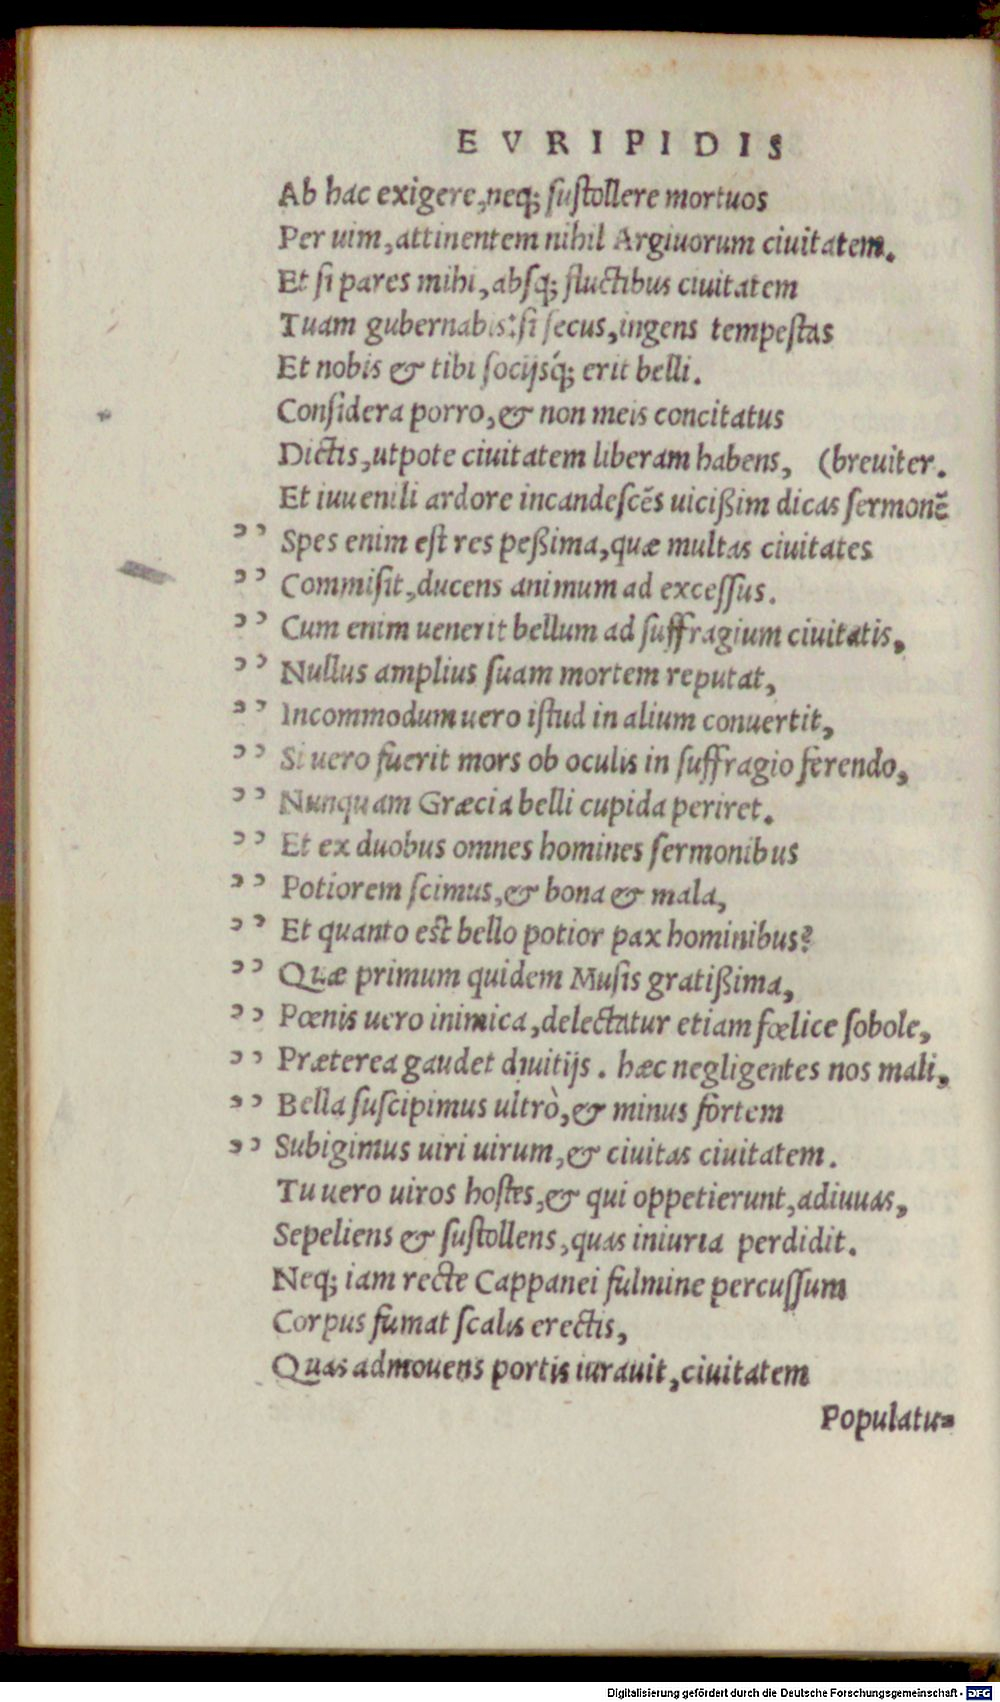 EVRIPIDIS
Ab hac exigere, neq; ſuſtollere mortuos
Per uim, attinentem nihil Argiuorum ciuitatem.
Et ſi pares mihi, abſq; fluctibus ciuitatem
Tuam gubernabis: ſi ſecus, ingens tempeſtas
Et nobis & tibi ſocijsq́; erit belli.
Conſidera porro, & non meis concitatus
Dictis, utpote ciuitatem liberam habens, (breuiter.
Et iuuenili ardore incandeſcẽs uicißim dicas ſermonẽ
” Spes enim eſt res peßima, quæ multas ciuitates
” Commiſit, ducens animum ad exceſſus.
” Cum enim uenerit bellum ad ſuffragium ciuitatis,
” Nullus amplius ſuam mortem reputat,
” Incommodum uero iſtud in alium conuertit,
” Si uero fuerit mors ob oculis in ſuffragio ferendo,
” Nunquam Græcia belli cupida periret.
” Et ex duobus omnes homines ſermonibus
” Potiorem ſcimus, & bona & mala,
” Et quanto est bello potior pax hominibus?
” Quæ primum quidem Muſis gratißima,
” Pœnis uero inimica, delectatur etiam fœlice ſobole,
” Præterea gaudet diuitijs. hæc negligentes nos mali,
” Bella ſuſcipimus ultrò, & minus fortem
” Subigimus uiri uirum, & ciuitas ciuitatem.
Tu uero uiros hoſtes, & qui oppetierunt, adiuuas,
Sepeliens & ſuſtollens, quas iniuria perdidit.
Neq; iam recte Cappanei fulmine percuſſum
Corpus fumat ſcalis erectis,
Quas admouens portis iurauit, ciuitatem
Populatu-
Digitalisierung gefördert durch die Deutsche Forschungsgemeinschaft - DFG